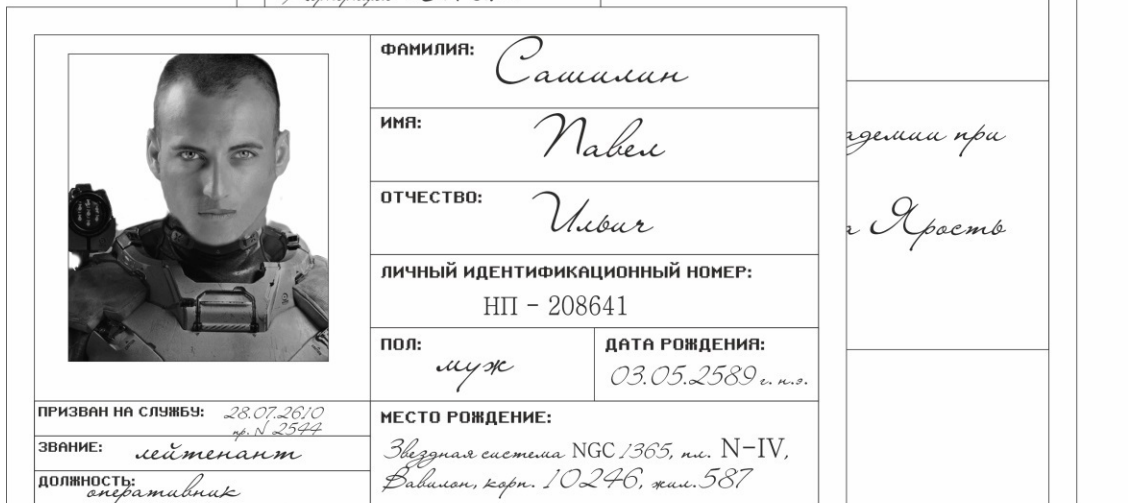 ФАМИЛИЯ: Сашилин
ИМЯ: Павел
адемии при
ОТЧЕСТВО: Ильич
Ярость
ЛИЧНЫЙ ИДЕНТИФИКАЦИОННЫЙ НОМЕР:
НП - 208641
ПОЛ: муж
ДАТА РОЖДЕНИЯ:
03.05.2589 г. н.э.
ПРИЗВАН НА СЛУЖБУ: 28.07.2610
пр. N 2544
ЗВАНИЕ: лейтенант
ДОЛЖНОСТЬ: оперативник
МЕСТО РОЖДЕНИЕ:
Звездная система NGC 1365, пл. N-IV,
Вавилон, корп. 10246, жил. 587